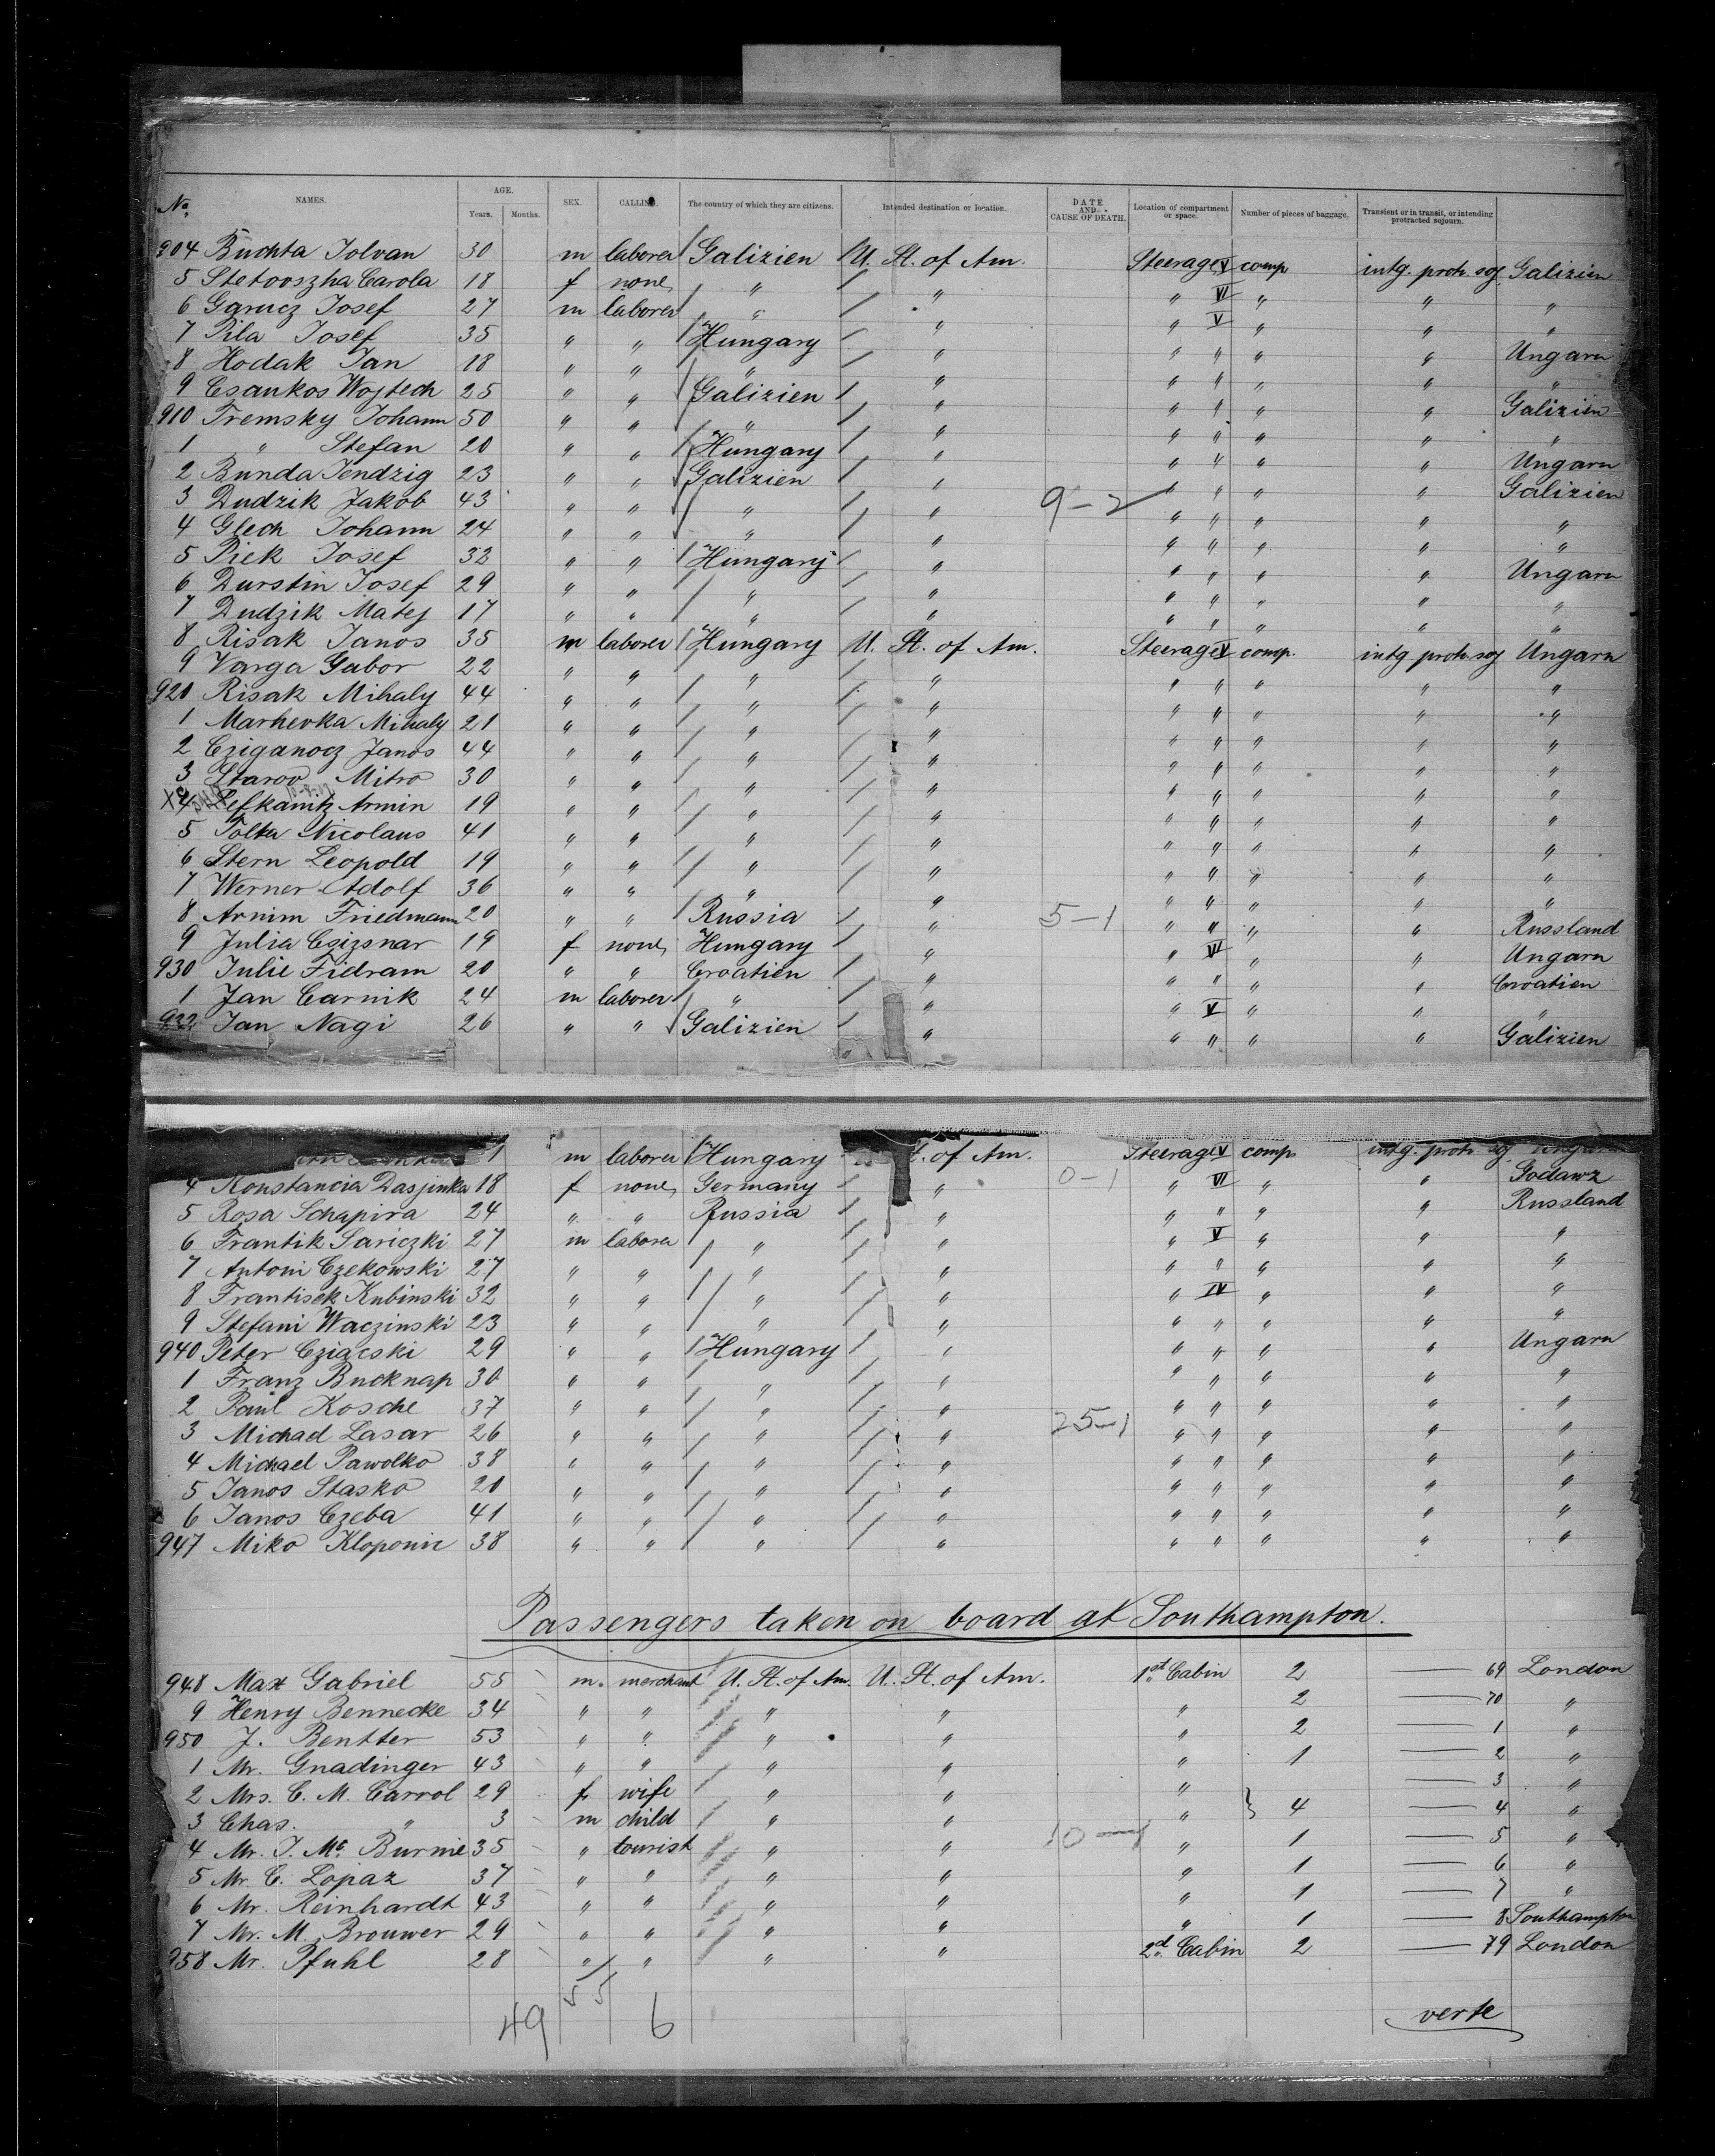 No. NAMES. AGE. Years. Months. SEX. CALLING. The country of which they are citizens. Intended destination or location. DATE AND CAUSE OF DEATH. Location of compartment or space. Number of pieces of baggage. Transient or in transit, or intending protracted sojourn.
904 Buchta Iolvan 30 m laborer Galizien U. St. of Am. Steerage V comp intg. protr. soj Galizien
5 Stetooszha Carola 18 f none " " " VI " " "
6 Garucz Josef 27 m laborer " " " V " " "
7 Pila Josef 35 " " Hungary " " " " " Ungarn
8 Hodak Jan 18 " " " " " " " " "
9 Csankos Wojtech 25 " " Galizien " " " " " Galizien
910 Tremsky Johann 50 " " " " " " " " "
1 " Stefan 20 " " Hungary " " " " " Ungarn
2 Bunda Jendzig 23 " " Galizien " " " " " Galizien
3 Dudzik Jakob 43 " " " " 9-2 " " " " "
4 Glech Johann 24 " " " " " " " " "
5 Piek Josef 32 " " Hungary " " " " " Ungarn
6 Durstin Josef 29 " " " " " " " " "
7 Dudzik Matej 17 " " " " " " " " "
8 Risak Janos 35 m laborer Hungary U. St. of Am. Steerage V comp. intg protr. soj Ungarn
9 Varga Gabor 22 " " " " " " " " "
920 Risak Mihaly 44 " " " " " " " " "
1 Marhevka Mihaly 21 " " " " " " " " "
2 Cziganocz Janos 44 " " " " " " " " "
3 Starov Mitro 30 " " " " " " " " "
X4 Lefkanitz Armin 19 " " " " " " " " "
5 Tolka Nicolaus 41 " " " " " " " " "
6 Stern Leopold 19 " " " " " " " " "
7 Werner Adolf 36 " " " " " " " " "
8 Arnim Friedmann 20 " " Russia " 5-1 " " " " Russland
9 Julia Csizsnar 19 f none Hungary " " VI " " Ungarn
930 Julie Fidram 20 " " Croatien " " " " " Croatien
1 Jan Carnik 24 m laborer " " " V " " "
932 Jan Nagi 26 " " Galizien " " " " " Galizien
1 m laborer Hungary St. of Am. Steerage V comp intg. protr soj Ungarn
4 Konstancia Dasjinka 18 f none Germany " 0-1 " VI " " Godawz
5 Rosa Schapira 24 " " Russia " " " " " Russland
6 Frantik Sariczki 27 m laborer " " " V " " "
7 Antoni Czekowski 27 " " " " " " " " "
8 Frantisek Kubinski 32 " " " " " IV " " "
9 Stefani Waczinski 23 " " " " " " " " "
940 Peter Cziacski 29 " " Hungary " " " " " Ungarn
1 Franz Bucknap 30 " " " " " " " " "
2 Paul Kosche 37 " " " " " " " " "
3 Michael Lasar 26 " " " " 25-1 " " " " "
4 Michael Pawolko 38 " " " " " " " " "
5 Janos Stasko 20 " " " " " " " " "
6 Janos Czeba 41 " " " " " " " " "
947 Miko Kloponic 38 " " " " " " " " "
Passengers taken on board at Southampton.
948 Max Gabriel 55 m. merchant U. St. of Am. U. St. of Am. 1st Cabin 2 — 69 London
9 Henry Bennecke 34 " " " " " 2 — 70 "
950 J. Bentter 53 " " " " " 2 — 1 "
1 Mr. Gnadinger 43 " " " " " 1 — 2 "
2 Mrs. C. M. Carrol 29 f wife " " " — 3 "
3 Chas. " 3 m child " " " } 4 — 4 "
4 Mr. J. Mc. Burnie 35 " tourist " " 10-1 " 1 — 5 "
5 Mr. C. Lopaz 37 " " " " " 1 — 6 "
6 Mr. Reinhardt 43 " " " " " 1 — 7 "
7 Mr. M. Brouwer 29 " " " " " 1 — 8 Southampton
958 Mr. Pfuhl 28 " " " " 2d. Cabin 2 — 79 London
49 55 6
verte